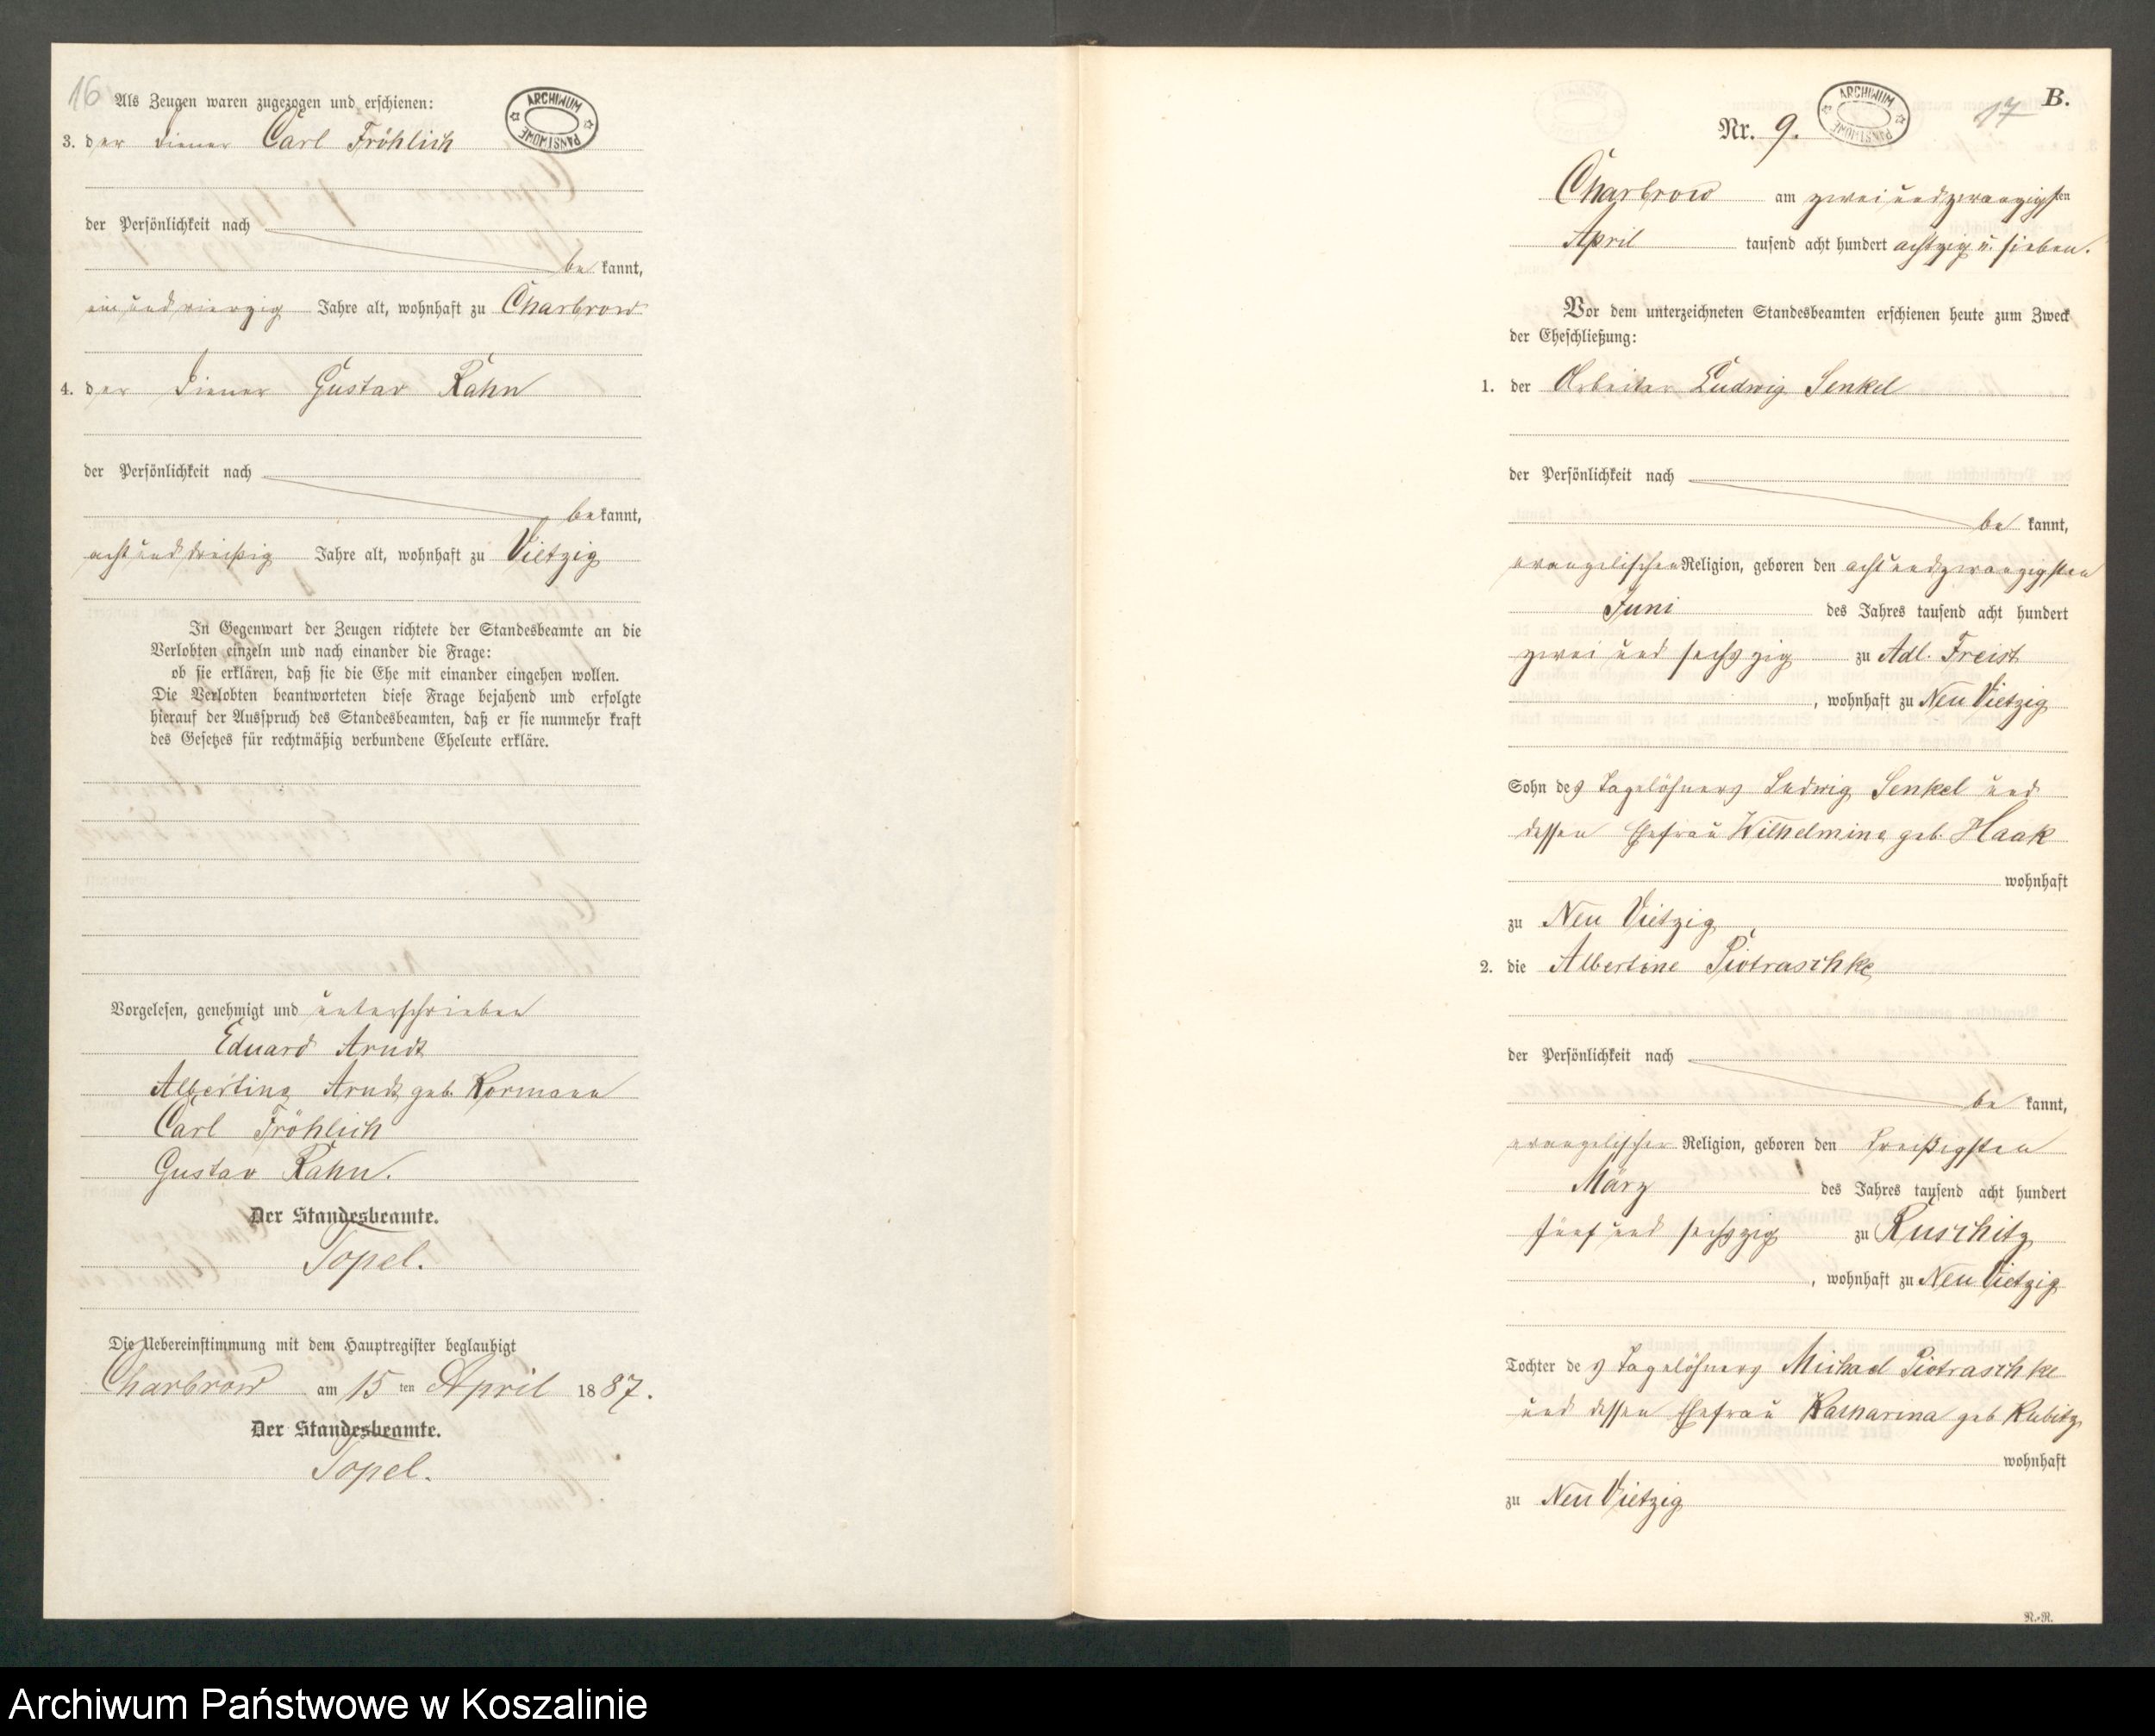 16
Als Zeugen waren zugezogen und erschienen:
ARCHIWUM PAŃSTWOWE
3. der Diener Carl Fröhlich
der Persönlichkeit nach
be kannt,
ein und vierzig Jahre alt, wohnhaft zu Charbrow
4. der Diener Gustav Rahn
der Persönlichkeit nach
be kannt,
acht und dreißig Jahre alt, wohnhaft zu Vietzig
In Gegenwart der Zeugen richtete der Standesbeamte an die
Verlobten einzeln und nach einander die Frage:
ob sie erklären, daß sie die Ehe mit einander eingehen wollen.
Die Verlobten beantworteten diese Frage bejahend und erfolgte
hierauf der Ausspruch des Standesbeamten, daß er sie nunmehr kraft
des Gesetzes für rechtmäßig verbundene Eheleute erkläre.
Vorgelesen, genehmigt und unterschrieben
Eduard Arndt
Albertine Arndt geb. Kormann
Carl Fröhlich
Gustav Rahn.
Der Standesbeamte.
Topel.
Die Uebereinstimmung mit dem Hauptregister beglaubigt
Charbrow am 15 ten April 1887.
Der Standesbeamte.
Topel.
B.
17
ARCHIWUM PAŃSTWOWE
Nr. 9.
Charbrow am zwei und zwanzigsten
April tausend acht hundert achtzig u. sieben.
Vor dem unterzeichneten Standesbeamten erschienen heute zum Zweck
der Eheschließung:
1. der Arbeiter Ludwig Senkel
der Persönlichkeit nach
be kannt,
evangelischen Religion, geboren den acht und zwanzigsten
Juni des Jahres tausend acht hundert
zwei und sechszig zu Adl. Freist
, wohnhaft zu Neu Vietzig
Sohn des Tagelöhners Ludwig Senkel und
dessen Ehefrau Wilhelmine geb. Haak
wohnhaft
zu Neu Vietzig
2. die Albertine Piotraschke
der Persönlichkeit nach
be kannt,
evangelischer Religion, geboren den dreißigsten
März des Jahres tausend acht hundert
fünf und sechszig zu Ruschitz
, wohnhaft zu Neu Vietzig
Tochter des Tagelöhners Michael Piotraschke
und dessen Ehefrau Katharina geb Kubitz
wohnhaft
zu Neu Vietzig
R.-R.
Archiwum Państwowe w Koszalinie